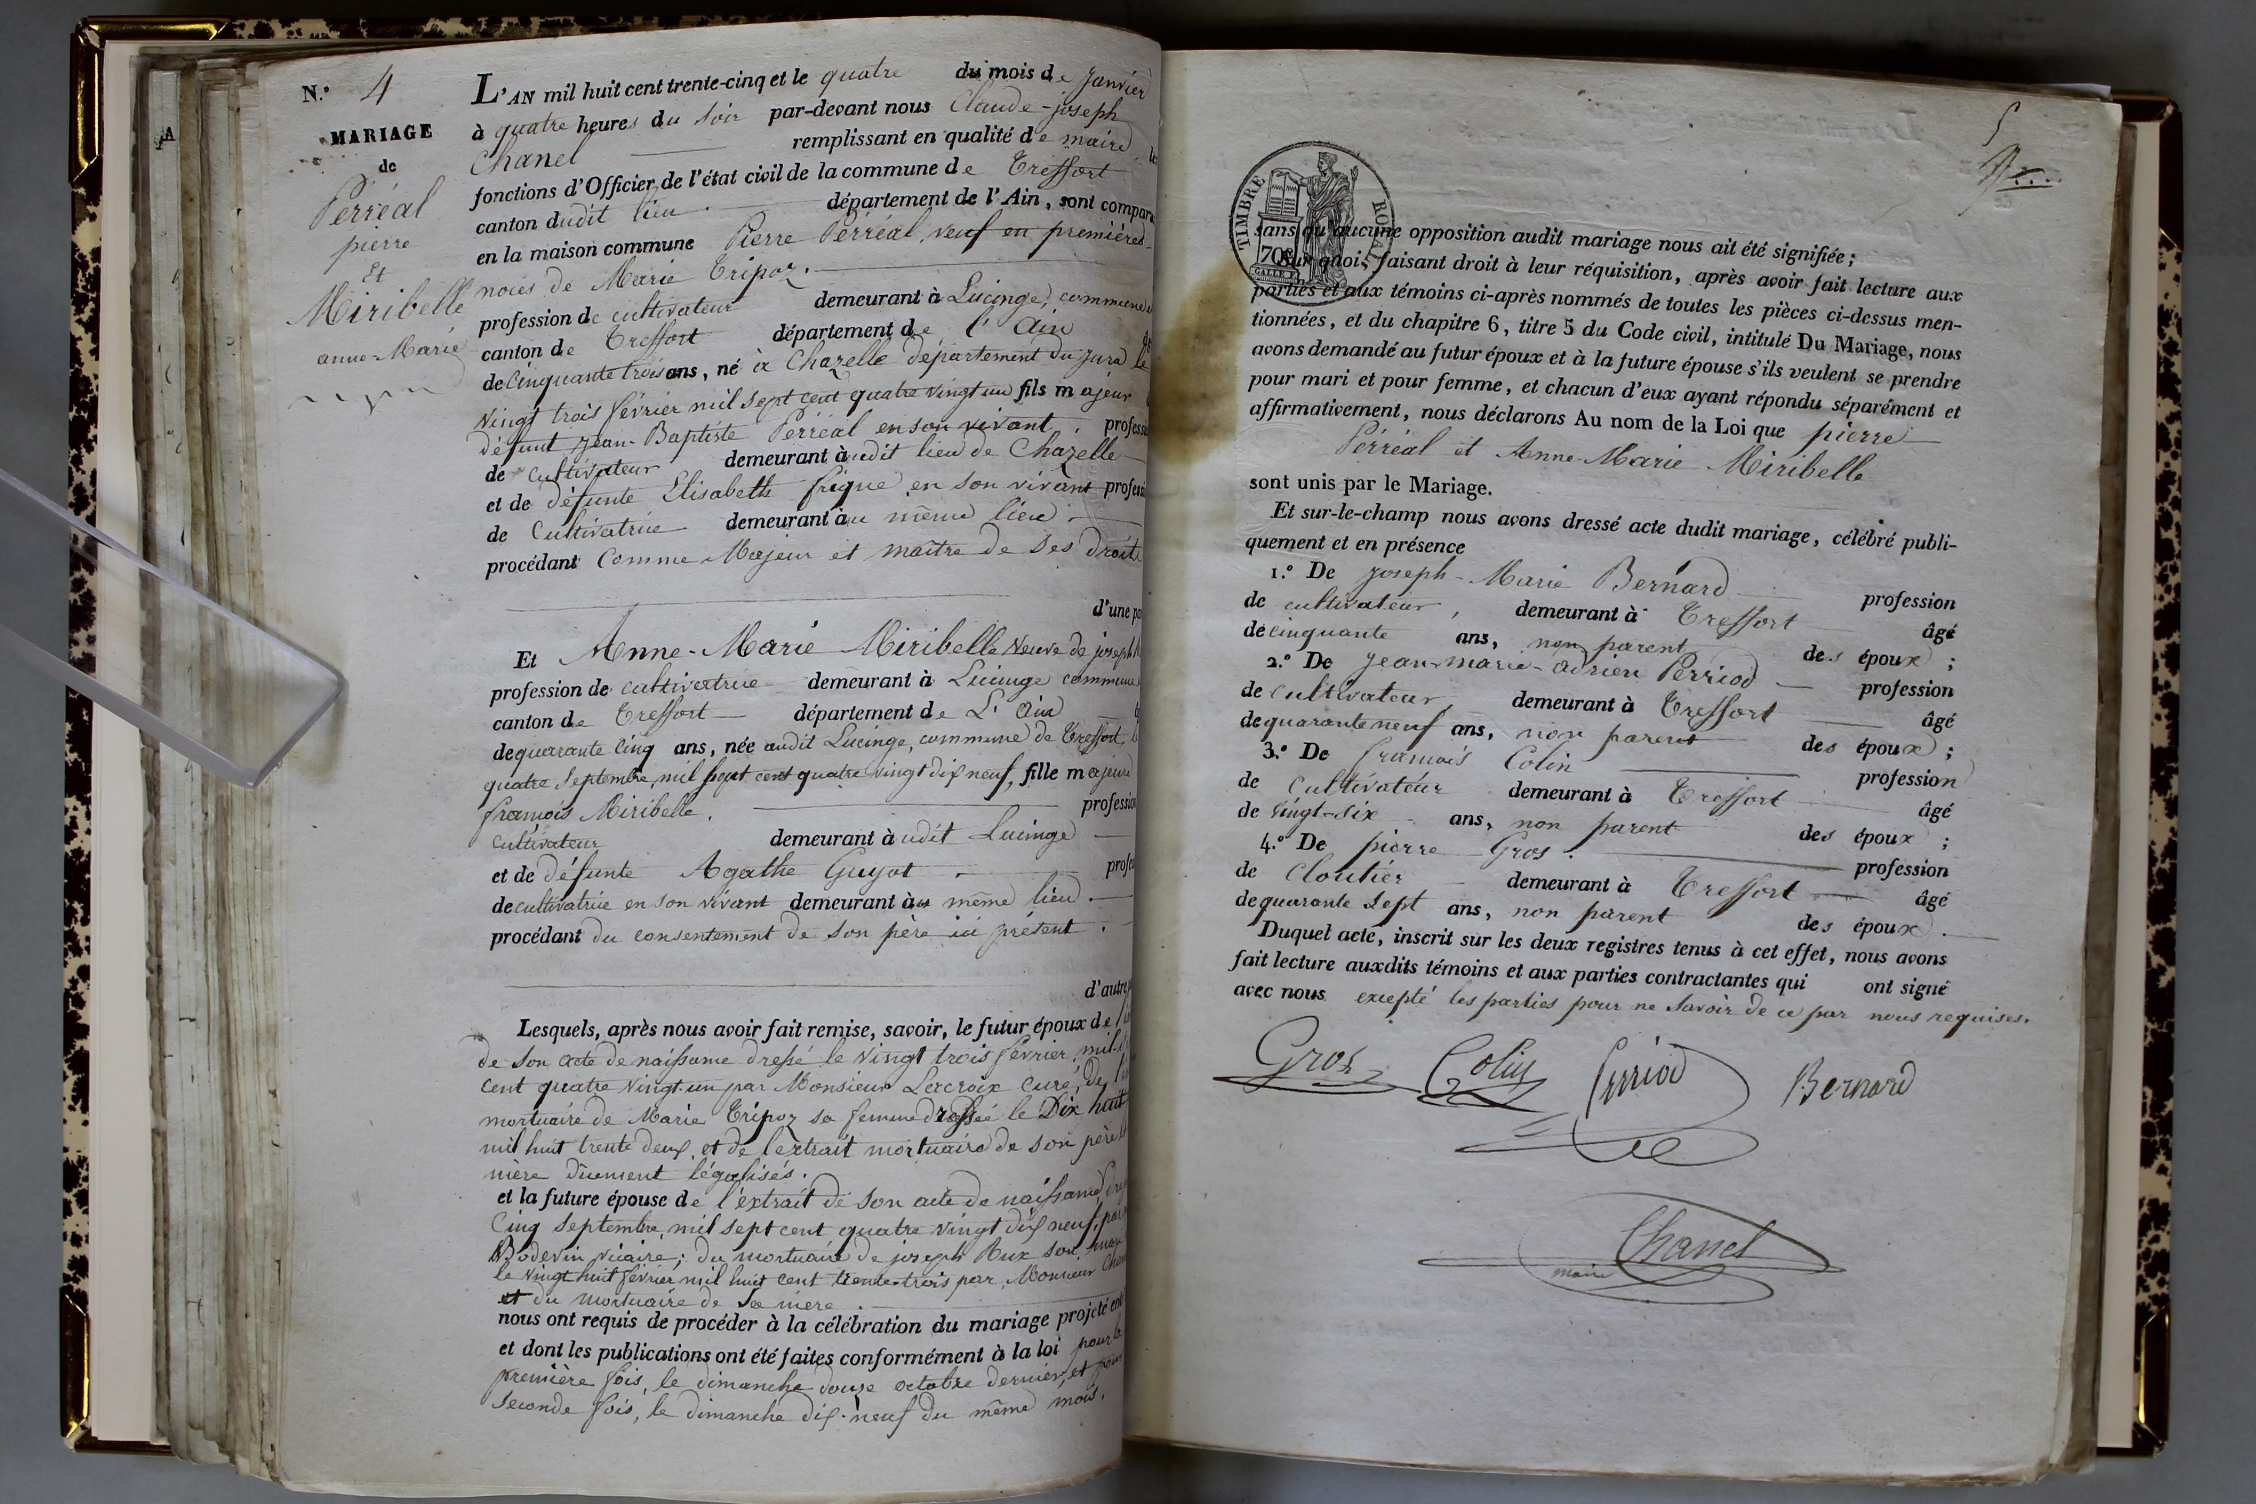 N.° 4
MARIAGE
de
Perréal
pierre
Et
Miribelle
anne-Marie
L'AN mil huit cent trente-cinq et le quatre du mois de Janvier
à quatre heures du soir par-devant nous Claude-joseph
Chanel remplissant en qualité de maire les
fonctions d'Officier de l'état civil de la commune de Treffort
canton dudit lieu département de l'Ain, sont comparus
en la maison commune Pierre Pérréal, veuf en premières
noces de Marie Tripoz.
profession de cultivateur demeurant à Lucinge, commune
canton de Treffort département de l'Ain
de Cinquante trois ans, né à Chazelle département du jura le
Vingt trois février mil sept cent quatre vingt un fils majeur
défunt Jean-Baptiste Pérréal en son vivant, profession
de cultivateur demeurant audit lieu de Chazelle
et de défunte Elisabeth frique en son vivant profession
de Cultivatrice demeurant au même lieu
procédant Comme Majeur et maître de ses droits
d'une pa
Et Anne-Marie Miribelle Veuve de joseph
profession de cultivatrice demeurant à Lucinge commune
canton de Treffort département de L'Ain
de quarante Cinq ans, née audit Lucinge, commune de Treffort
quatre Septembre, mil sept cent quatre vingt dix neuf, fille majeure
françois Miribelle. profession
cultivateur demeurant audit Lucinge
et de défunte Agathe Guyot profe
de cultivatrice en son vivant demeurant au même lieu.
procédant du consentement de son père ici présent.
d'autre
Lesquels, après nous avoir fait remise, savoir, le futur époux de l'
de son acte de naissance dressé le vingt trois février mil
cent quatre vingt un par Monsieur Lacroix curé, de
mortuaire de Marie Tripoz sa femme dressé le Dix huit
mil huit trente deux, et de l'extrait mortuaire de son père
mère dûement légalisés.
et la future épouse de l'extrait de son acte de naissance
Cinq septembre, mil sept cent quatre vingt dix neuf, par
Bodevin vicaire; du mortuaire de joseph Rux son
le vingt huit février mil huit cent trente-trois par Monsieur
et du mortuaire de sa mère.
nous ont requis de procéder à la célébration du mariage projeté
et dont les publications ont été faites conformément à la loi pour la
première fois, le dimanche douze octobre dernier, et pour
seconde fois, le dimanche dix-neuf du même mois.
5
TIMBRE ROYAL
70
sans qu'aucune opposition audit mariage nous ait été signifiée;
Sur quoi, faisant droit à leur réquisition, après avoir fait lecture aux
parties et aux témoins ci-après nommés de toutes les pièces ci-dessus men-
tionnées, et du chapitre 6, titre 5 du Code civil, intitulé Du Mariage, nous
avons demandé au futur époux et à la future épouse s'ils veulent se prendre
pour mari et pour femme, et chacun d'eux ayant répondu séparément et
affirmativement, nous déclarons Au nom de la Loi que pierre
Pérréal et Anne-Marie Miribelle
sont unis par le Mariage.
Et sur-le-champ nous avons dressé acte dudit mariage, célébré publi-
quement et en présence
1.° De Joseph-Marie Bernard profession
de cultivateur, demeurant à Treffort âgé
de cinquante ans, non parent des époux;
2.° De Jean-marie-adrien Perriod profession
de Cultivateur, demeurant à Treffort âgé
de quarante neuf ans, non parent des époux;
3.° De françois Colin profession
de Cultivateur demeurant à Treffort âgé
de vingt-six ans, non parent des époux;
4.° De pierre Gros. profession
de Cloutier demeurant à Treffort âgé
de quarante sept ans, non parent des époux.
Duquel acte, inscrit sur les deux registres tenus à cet effet, nous avons
fait lecture auxdits témoins et aux parties contractantes qui ont signé
avec nous excepté les parties pour ne savoir de ce par nous requises.
Gros Colin Perriod Bernard
Chanel
maire